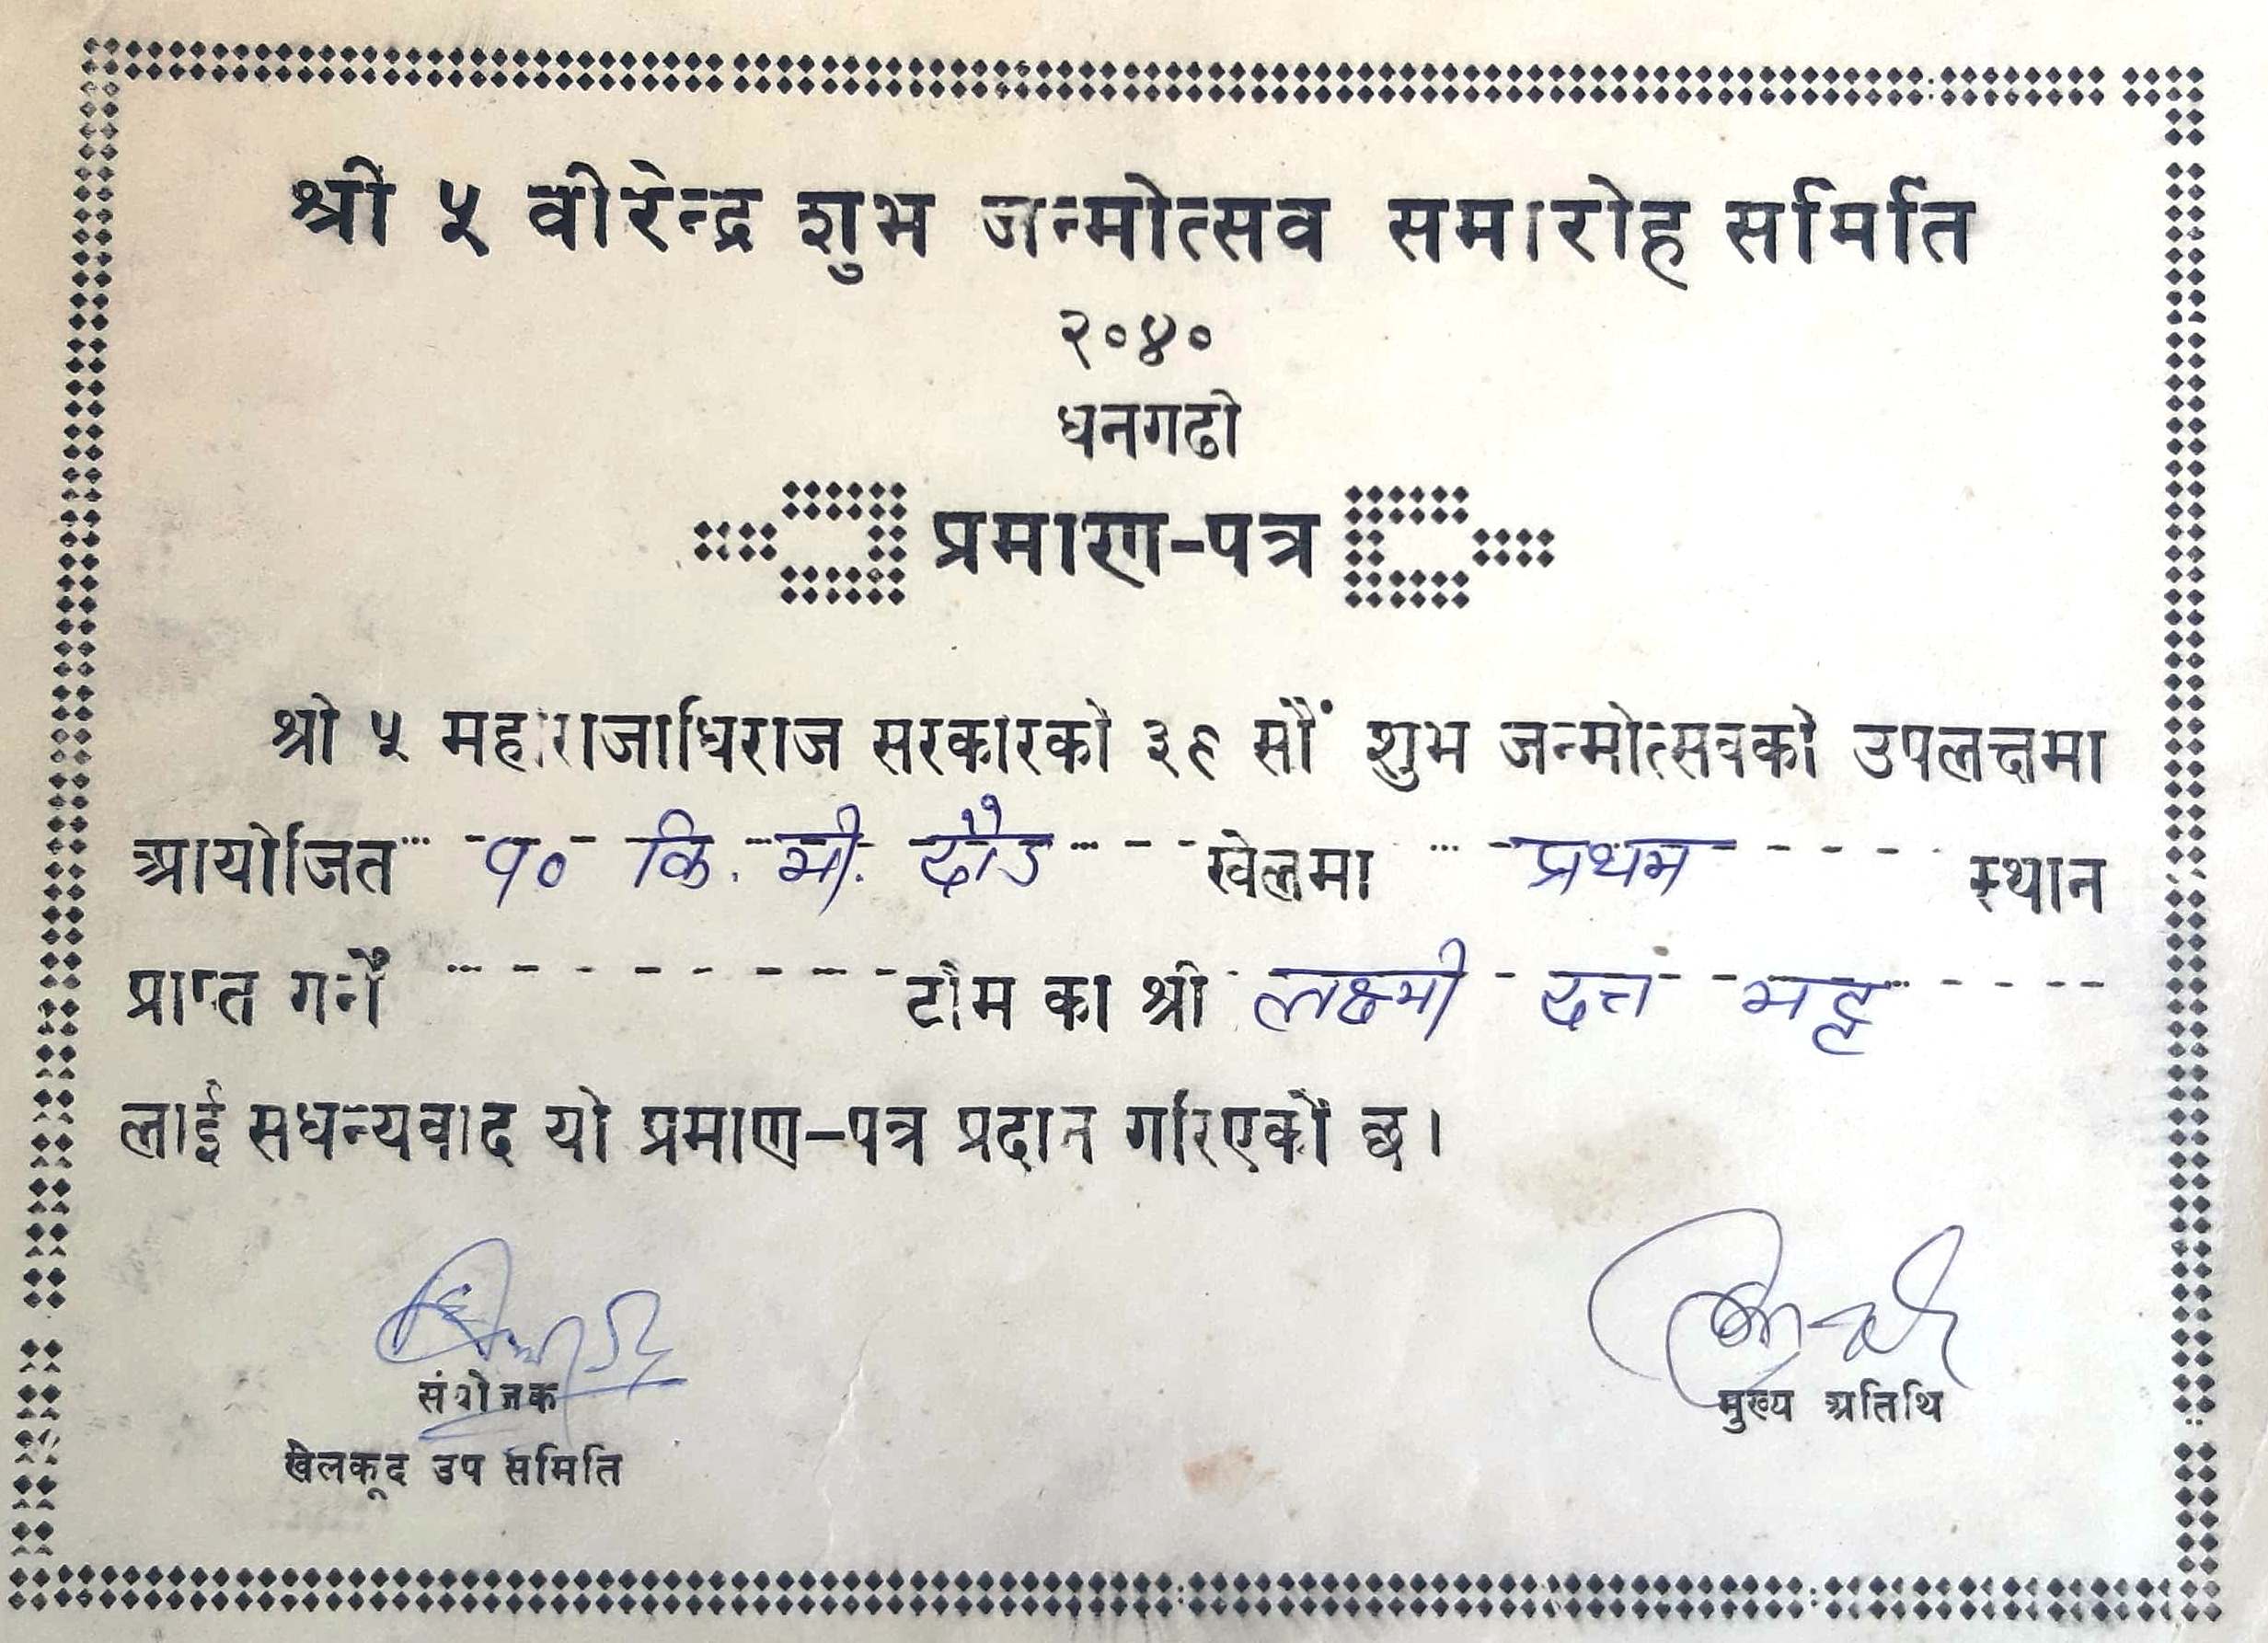 श्री ५ वीरेन्द्र शुभ जन्मोत्सव समारोह समिति
२०४०
धनगढी
प्रमाण-पत्र
श्री ५ महाराजाधिराज सरकारको ३९ सौं शुभ जन्मोत्सवको उपलक्षमा
आयोजित १० कि. मी. दौड खेलमा प्रथम स्थान
प्राप्त गर्ने टीम का श्री लक्ष्मी दत्त भट्ट
लाई सधन्यवाद यो प्रमाण-पत्र प्रदान गरिएको छ।
संयोजक
मुख्य अतिथि
खेलकूद उप समिति